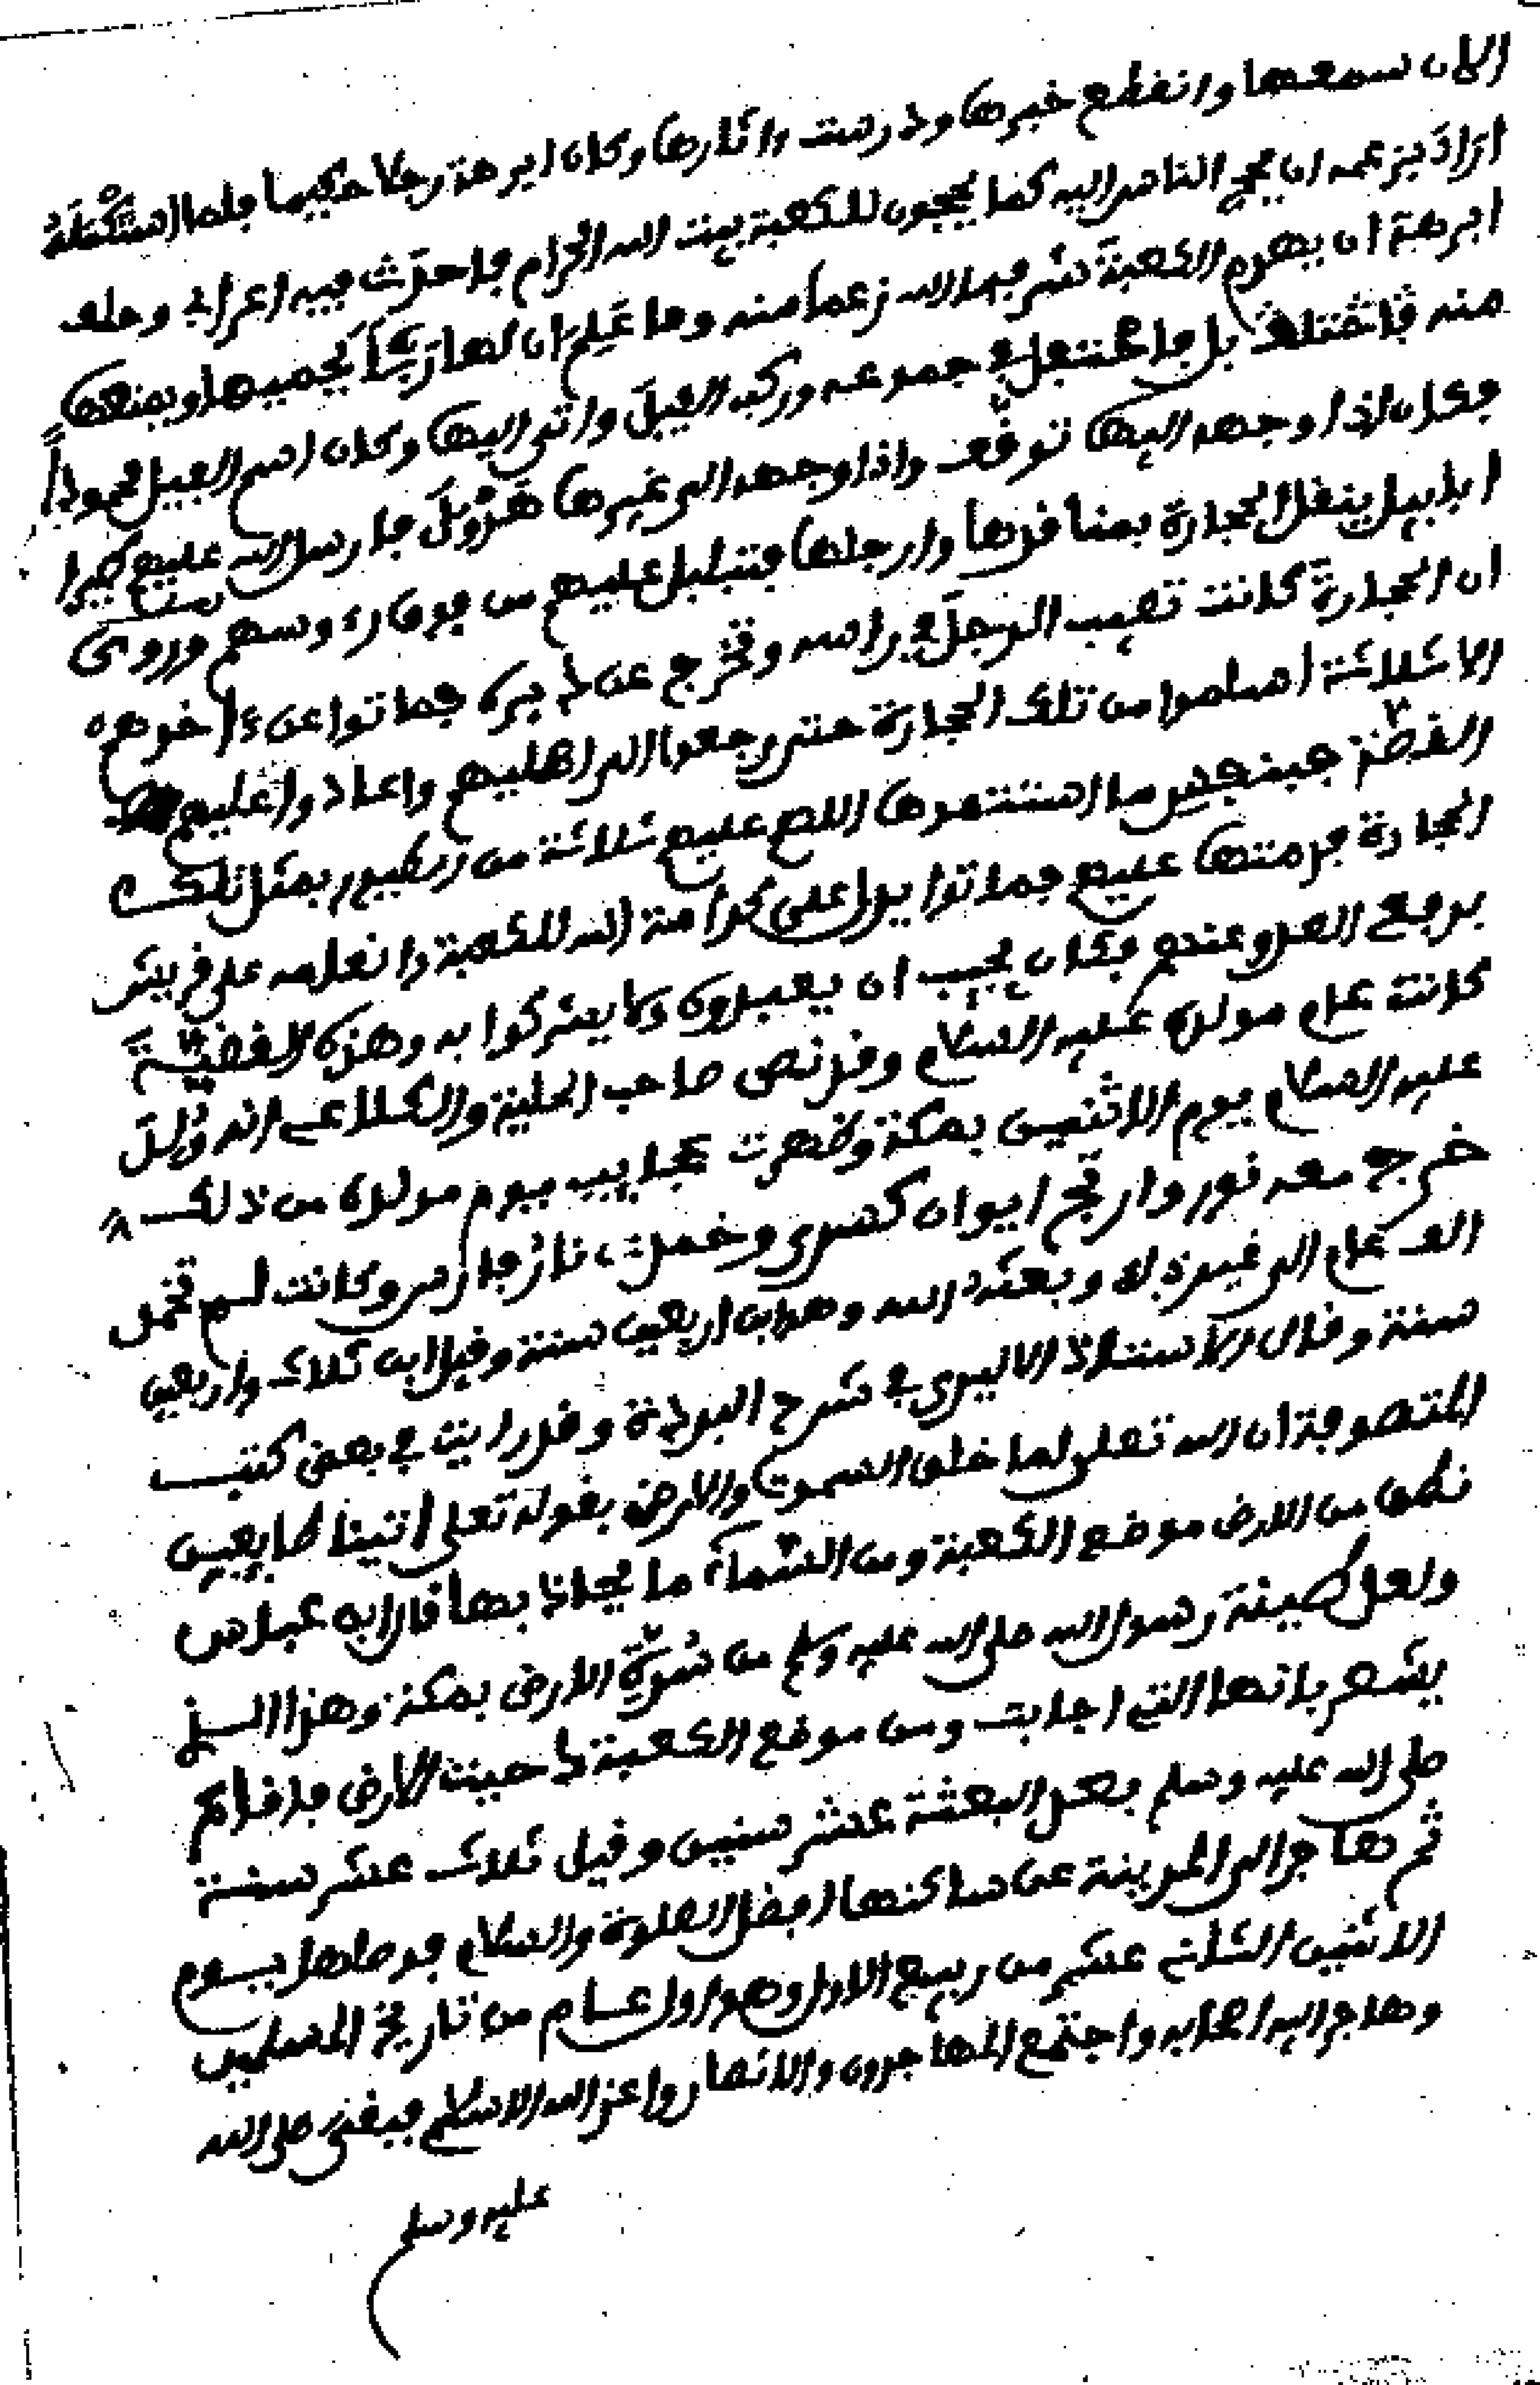 الان سمعها وانقطع خبرها ودرست ءاثارها وكان ابرهة رجلا حكيما فلما استكمله
اراد بزعمه ان يحج الناس اليه كما يحجون للكعبة بيت الله الحرام فاحدث فيه اعرابي وحلف
ابرهة ان يهدم الكعبة شرفها الله زعما منه وما علم ان لها ربا يحميها ويمنعها
منه فاختلف بل فاحتفل في جموعه وركب الفيل واتى اليها وكان اسم الفيل محمودا
فكان اذا وجهه اليها توقف واذا وجهه الى غيرها هرول فارسل الله عليهم طيرا
ابابيل ينقل الحجارة بمناقرها وارجلها فتبلبل عليهم من فوق رءوسهم وروى
ان الحجارة كانت تصيب الرجل في راسه وتخرج عن دبره فماتوا عن ءاخرهم
الا ثلاثة اسلموا من تلك الحجارة حتى رجعوا الى اهليهم واعادوا عليهم
القصة فبنفس ما استتموها اللع عليهم ثلاثة من الطيور بمثل تلك
الحجارة فرمتها عليهم فماتوا يدل على كرامة الله للكعبة وانعامه على قريش
برفع العدو عنهم فكان يجب ان يعبدوه ولا يشركوا به وهذه القضية
كانت عام مولده عليه السلام وقد نص صاحب الحلية والكلاعي انه ولد
عليه السلام يوم الاثنين بمكة وظهرت عجايب يوم مولده من ذلك
خرج معه نور وارتج ايوان كسرى وخمدت نار فارس وكانت لم تخمد
الف عام الى غير ذلك وبعثه الله وهو ابن اربعين سنة وقيل ابن ثلاث واربعين
سنة وقال الاستاذ الاليبري في شرح البردة وقد رايت في بعض كتب
المتصوفة ان الله تعلى لما خلق السموت والارض بقوله تعلى اتينا طايعين
نطق من الارض موضع الكعبة ومن السماء ما يحاذيها قال ابن عباس
ولعل طينة رسول الله صلى الله عليه وسلم من سرة الارض بمكة وهذا
يشعر بانها التي اجابت ومن موضع الكعبة دحيت الارض فاقام
صلى الله عليه وسلم بعد البعثة عشر سنين وقيل ثلاث عشر سنة
ثم هاجر الى المدينة على ساكنها افضل الصلوة والسلام فدخلها يوم
الاثنين الثاني عشر من ربيع الاول وهو اول عام من تاريخ المسلمين
وهاجر اليه اصحابه واجتمع المهاجرون والانصار واعز الله الاسلام فبقى صلى الله
عليه وسلم